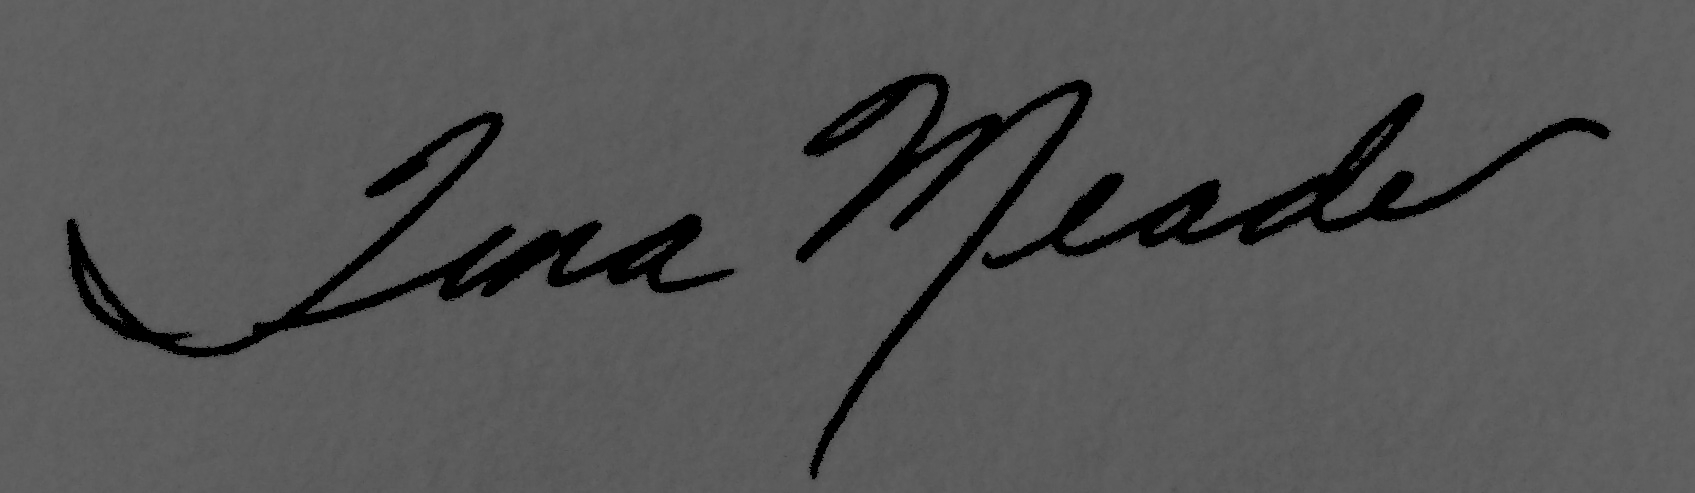 Tina Meade